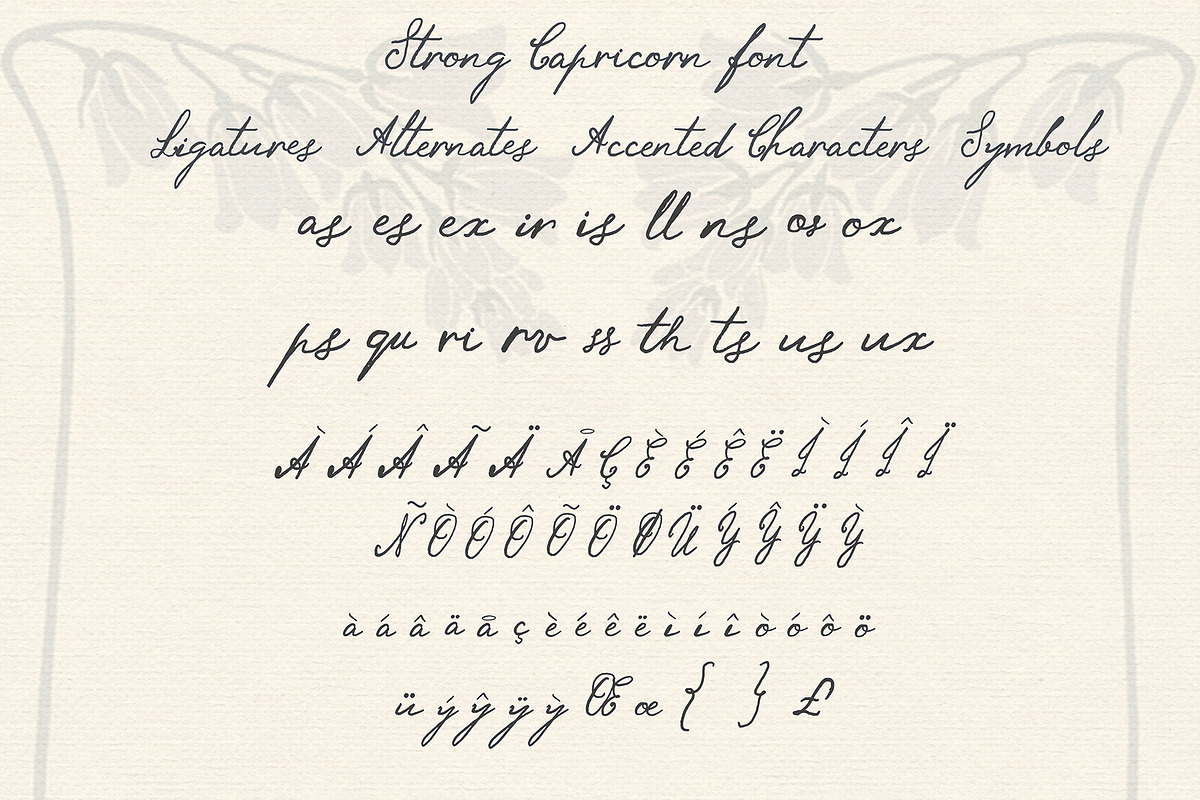 Strong Capricorn font
Ligatures Alternates Accented Characters Symbols
as es ex ir is ll ns os ox
ps qu ri rv ss th ts us ux
À Á Â Ã Ä Å Ç È É Ê Ë Ì Í Î Ï
Ñ Ò Ó Ô Õ Ö Ø Ü Ý Ŷ Ÿ Ỳ
à á â ä å ç è é ê ë ì í î ò ó ô ö
ü ý ŷ ÿ ỳ Œ œ { } £